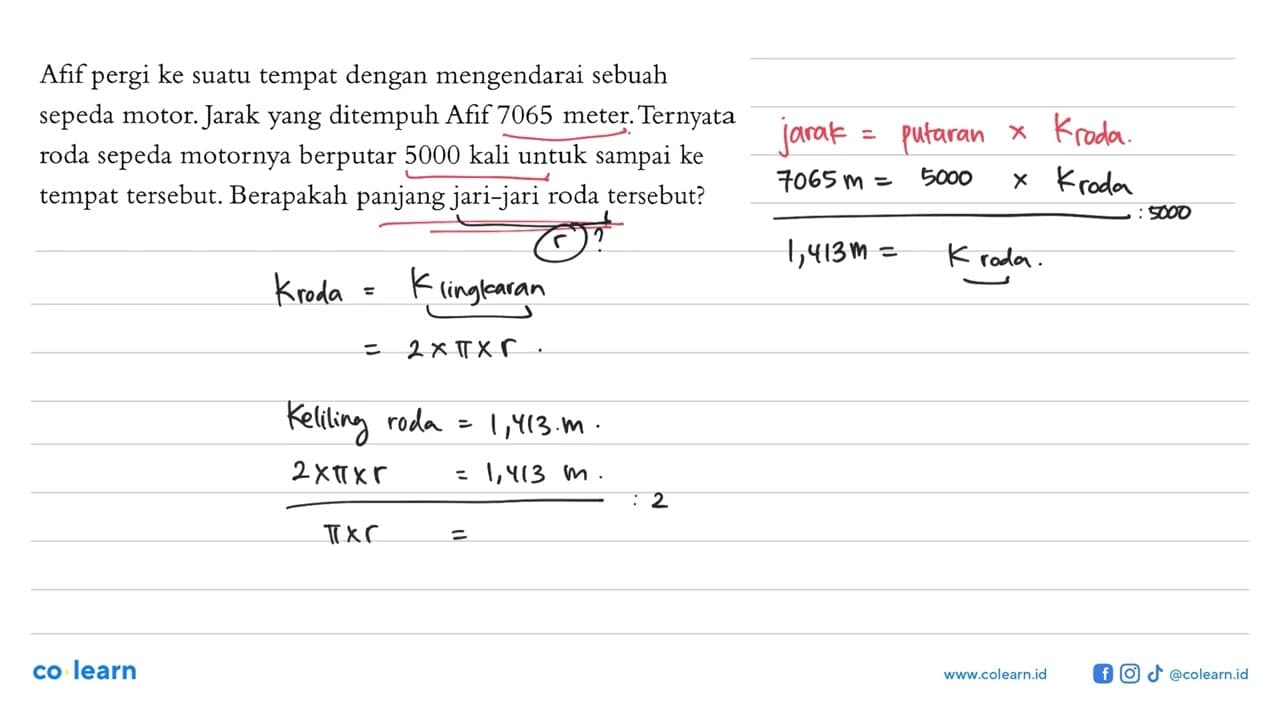 Afif pergi ke suatu tempat dengan mengendarai sebuah
sepeda motor. Jarak yang ditempuh Afif 7065 meter. Ternyata
roda sepeda motornya berputar 5000 kali untuk sampai ke
tempat tersebut. Berapakah panjang jari-jari roda tersebut?
r ?
jarak = putaran × Kroda.
7065 m = 5000 × Kroda
: 5000
1,413 m = K roda.
Kroda = K lingkaran
= 2 × π × r .
Keliling roda = 1,413 m .
2 × π × r = 1,413 m .
: 2
π × r =
co learn
www.colearn.id
@colearn.id